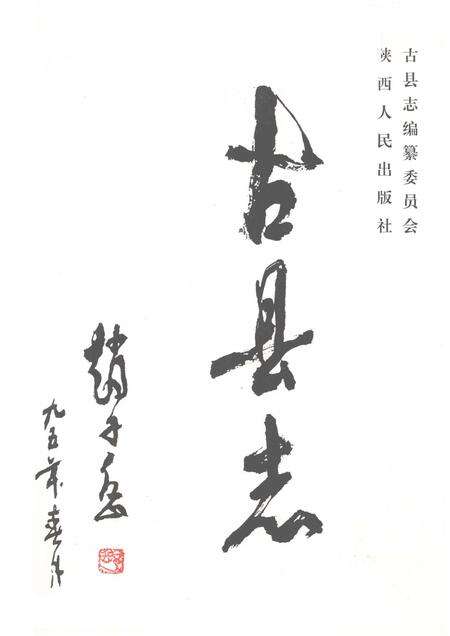 古县志编纂委员会
陕西人民出版社
古县志
赵子岳
九五年春月